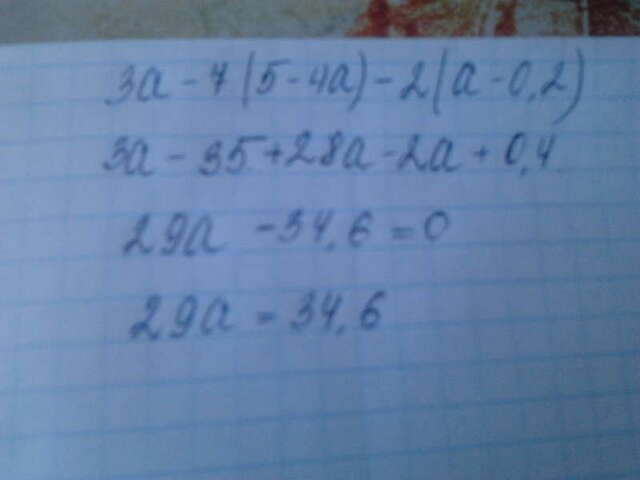 3a - 7(5 - 4a) - 2(a - 0,2)
3a - 35 + 28a - 2a + 0,4
29a - 34,6 = 0
29a = 34,6